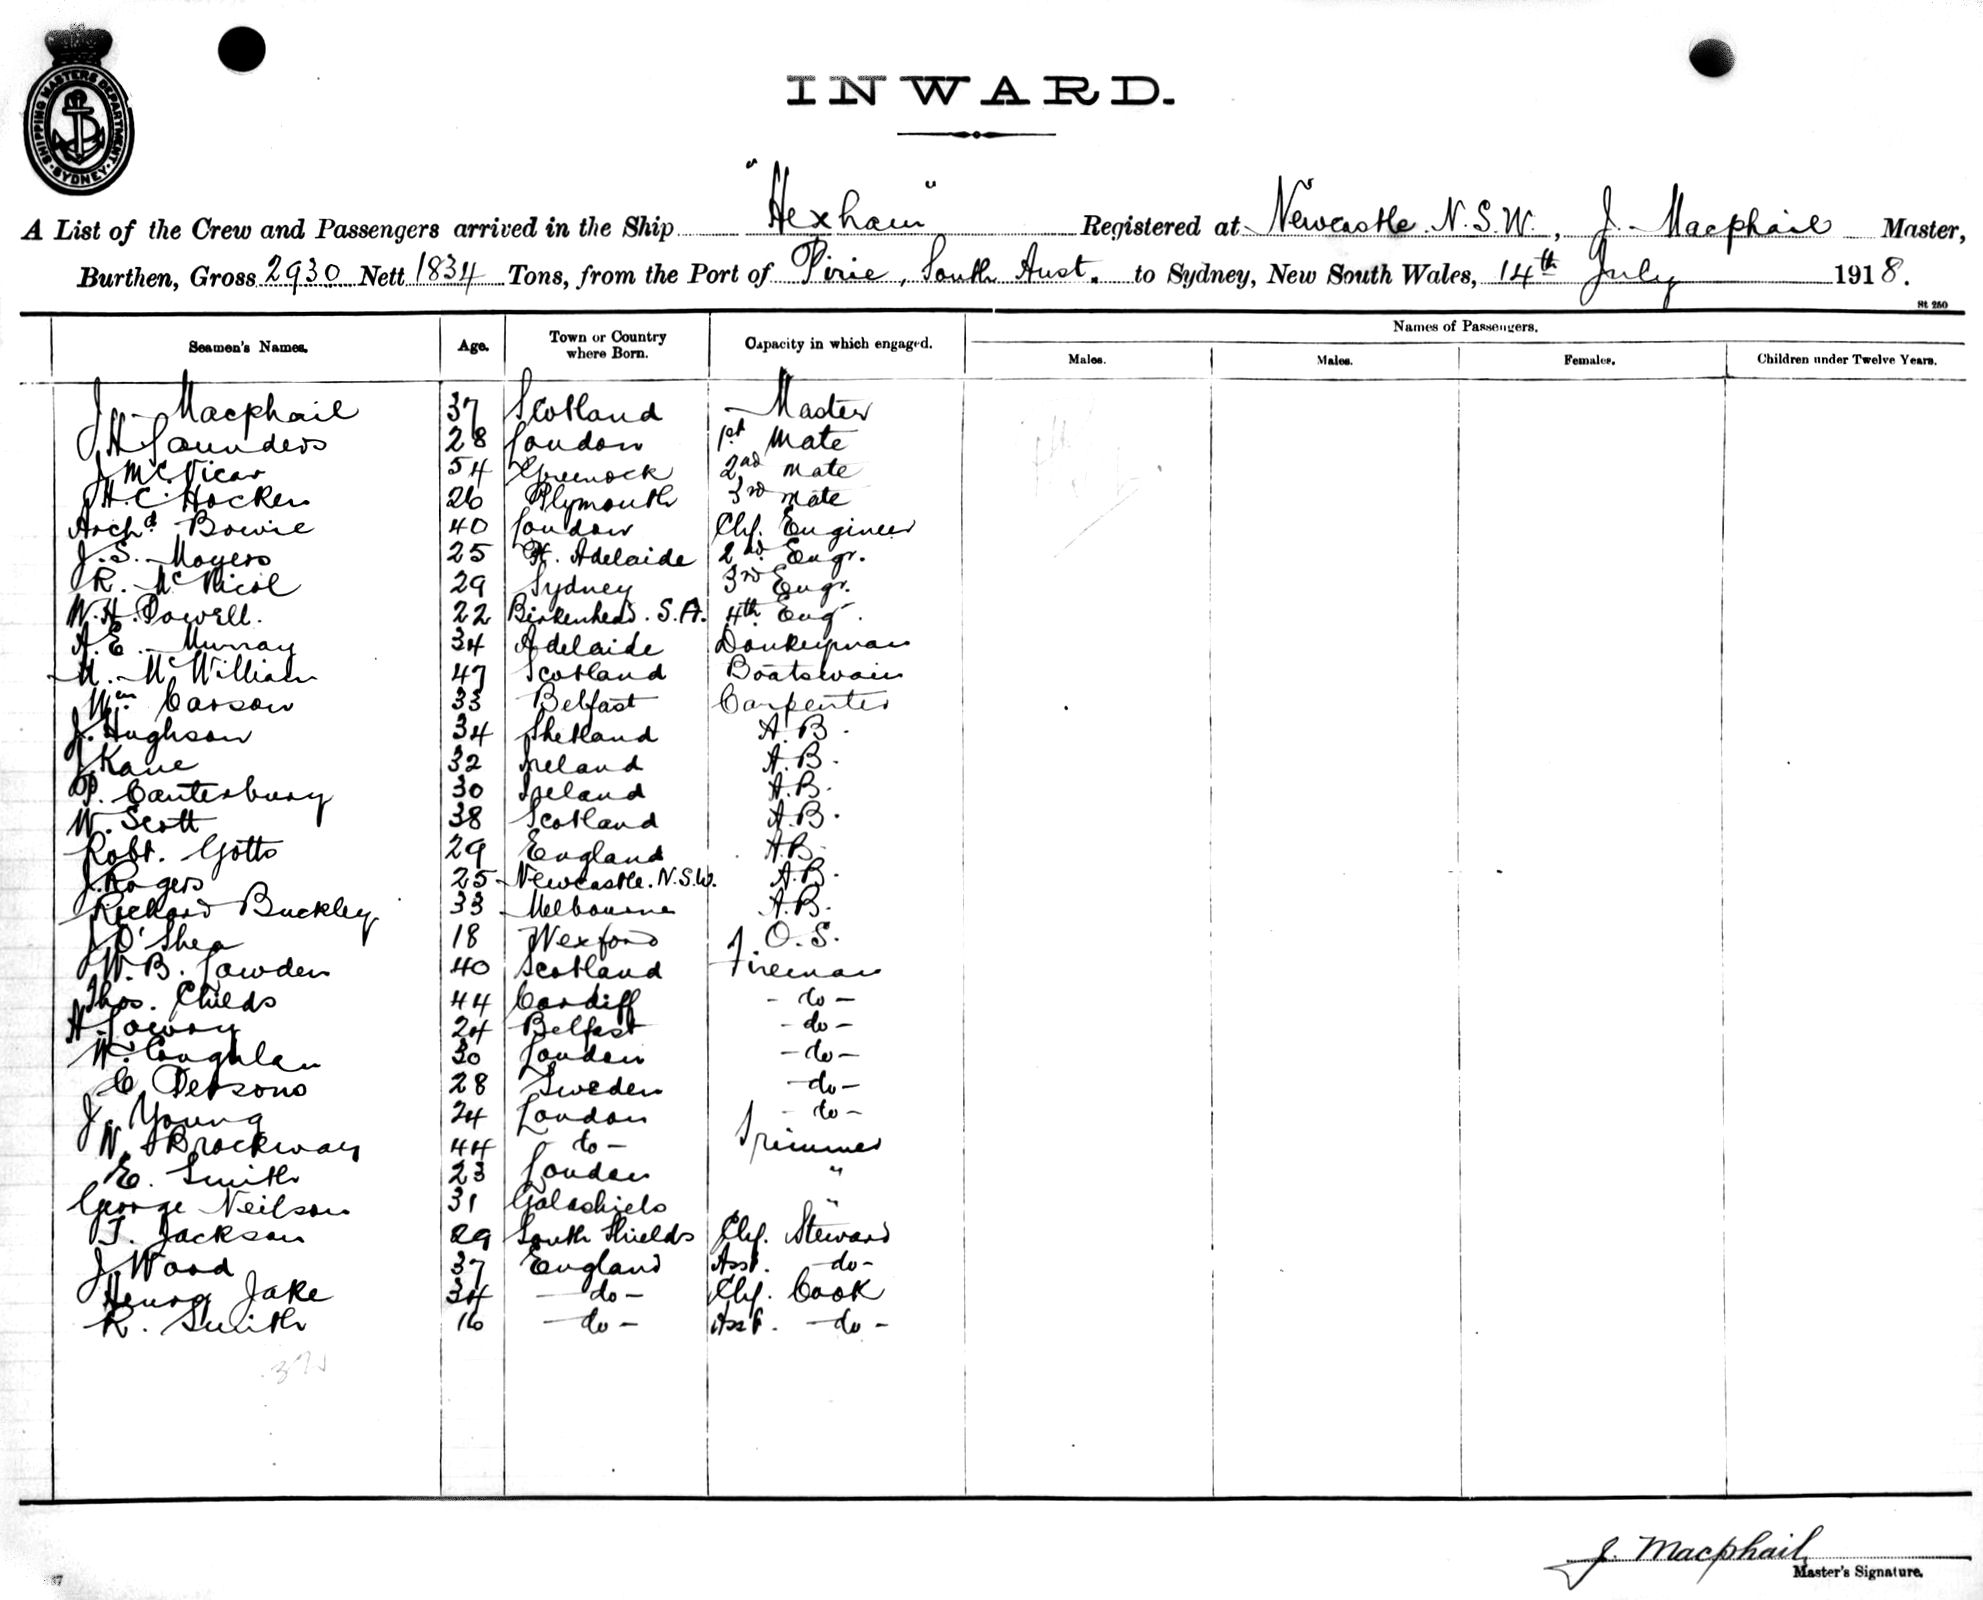 SHIPPING MASTERS DEPARTMENT
SYDNEY
INWARD.
A List of the Crew and Passengers arrived in the Ship "Hexham" Registered at Newcastle N.S.W., J. Macphail Master,
Burthen, Gross 2930 Nett 1834 Tons, from the Port of Pirie, South Aust. to Sydney, New South Wales, 14th July 1918.
St 250
Seamen's Names. Age. Town or Country where Born. Capacity in which engaged. Names of Passengers.
Males. Males. Females. Children under Twelve Years.
J. Macphail 37 Scotland Master
J H Saunders 28 London 1st Mate
J McVicar 54 Greenock 2nd mate
H. C. Hocken 26 Plymouth 3rd mate
Archd Bowie 40 London Chf. Engineer
J. S. Moyers 25 Adelaide 2nd Engr.
R. McNicol 29 Sydney 3rd Engr.
W. H. Powell. 22 Birkenhead. S.A. 4th Eng.
A. E. Murray 34 Adelaide Donkeyman
M. McWilliam 47 Scotland Boatswain
Wm Carson 33 Belfast Carpenter
J. Hughson 34 Shetland A.B.
J Kane 32 Ireland A.B.
P. Canterbury 30 Ireland A.B.
W. Scott 38 Scotland A.B.
Robt. Gotts 29 England A.B.
J. Rogers 25 Newcastle. N.S.W. A.B.
Richard Buckley 33 Melbourne A.B.
J O'Shea 18 Wexford O.S.
W. B. Lowden 40 Scotland Fireman
Thos. Childs 44 Cardiff - do -
H. Lowry 24 Belfast - do -
W. Coughlan 30 London - do -
C. Persons 28 Sweden - do -
J. Young 24 London - do -
W. Brockway 44 - do - Trimmer
E. Smith 23 London "
George Neilson 31 Galashiels "
T. Jackson 29 South Shields Chf. Steward
J Wood 37 England Asst. - do -
Henry Jake 34 - do - Chf. Cook
R. Smith 16 - do - Asst. - do -
J. Macphail
Master's Signature.